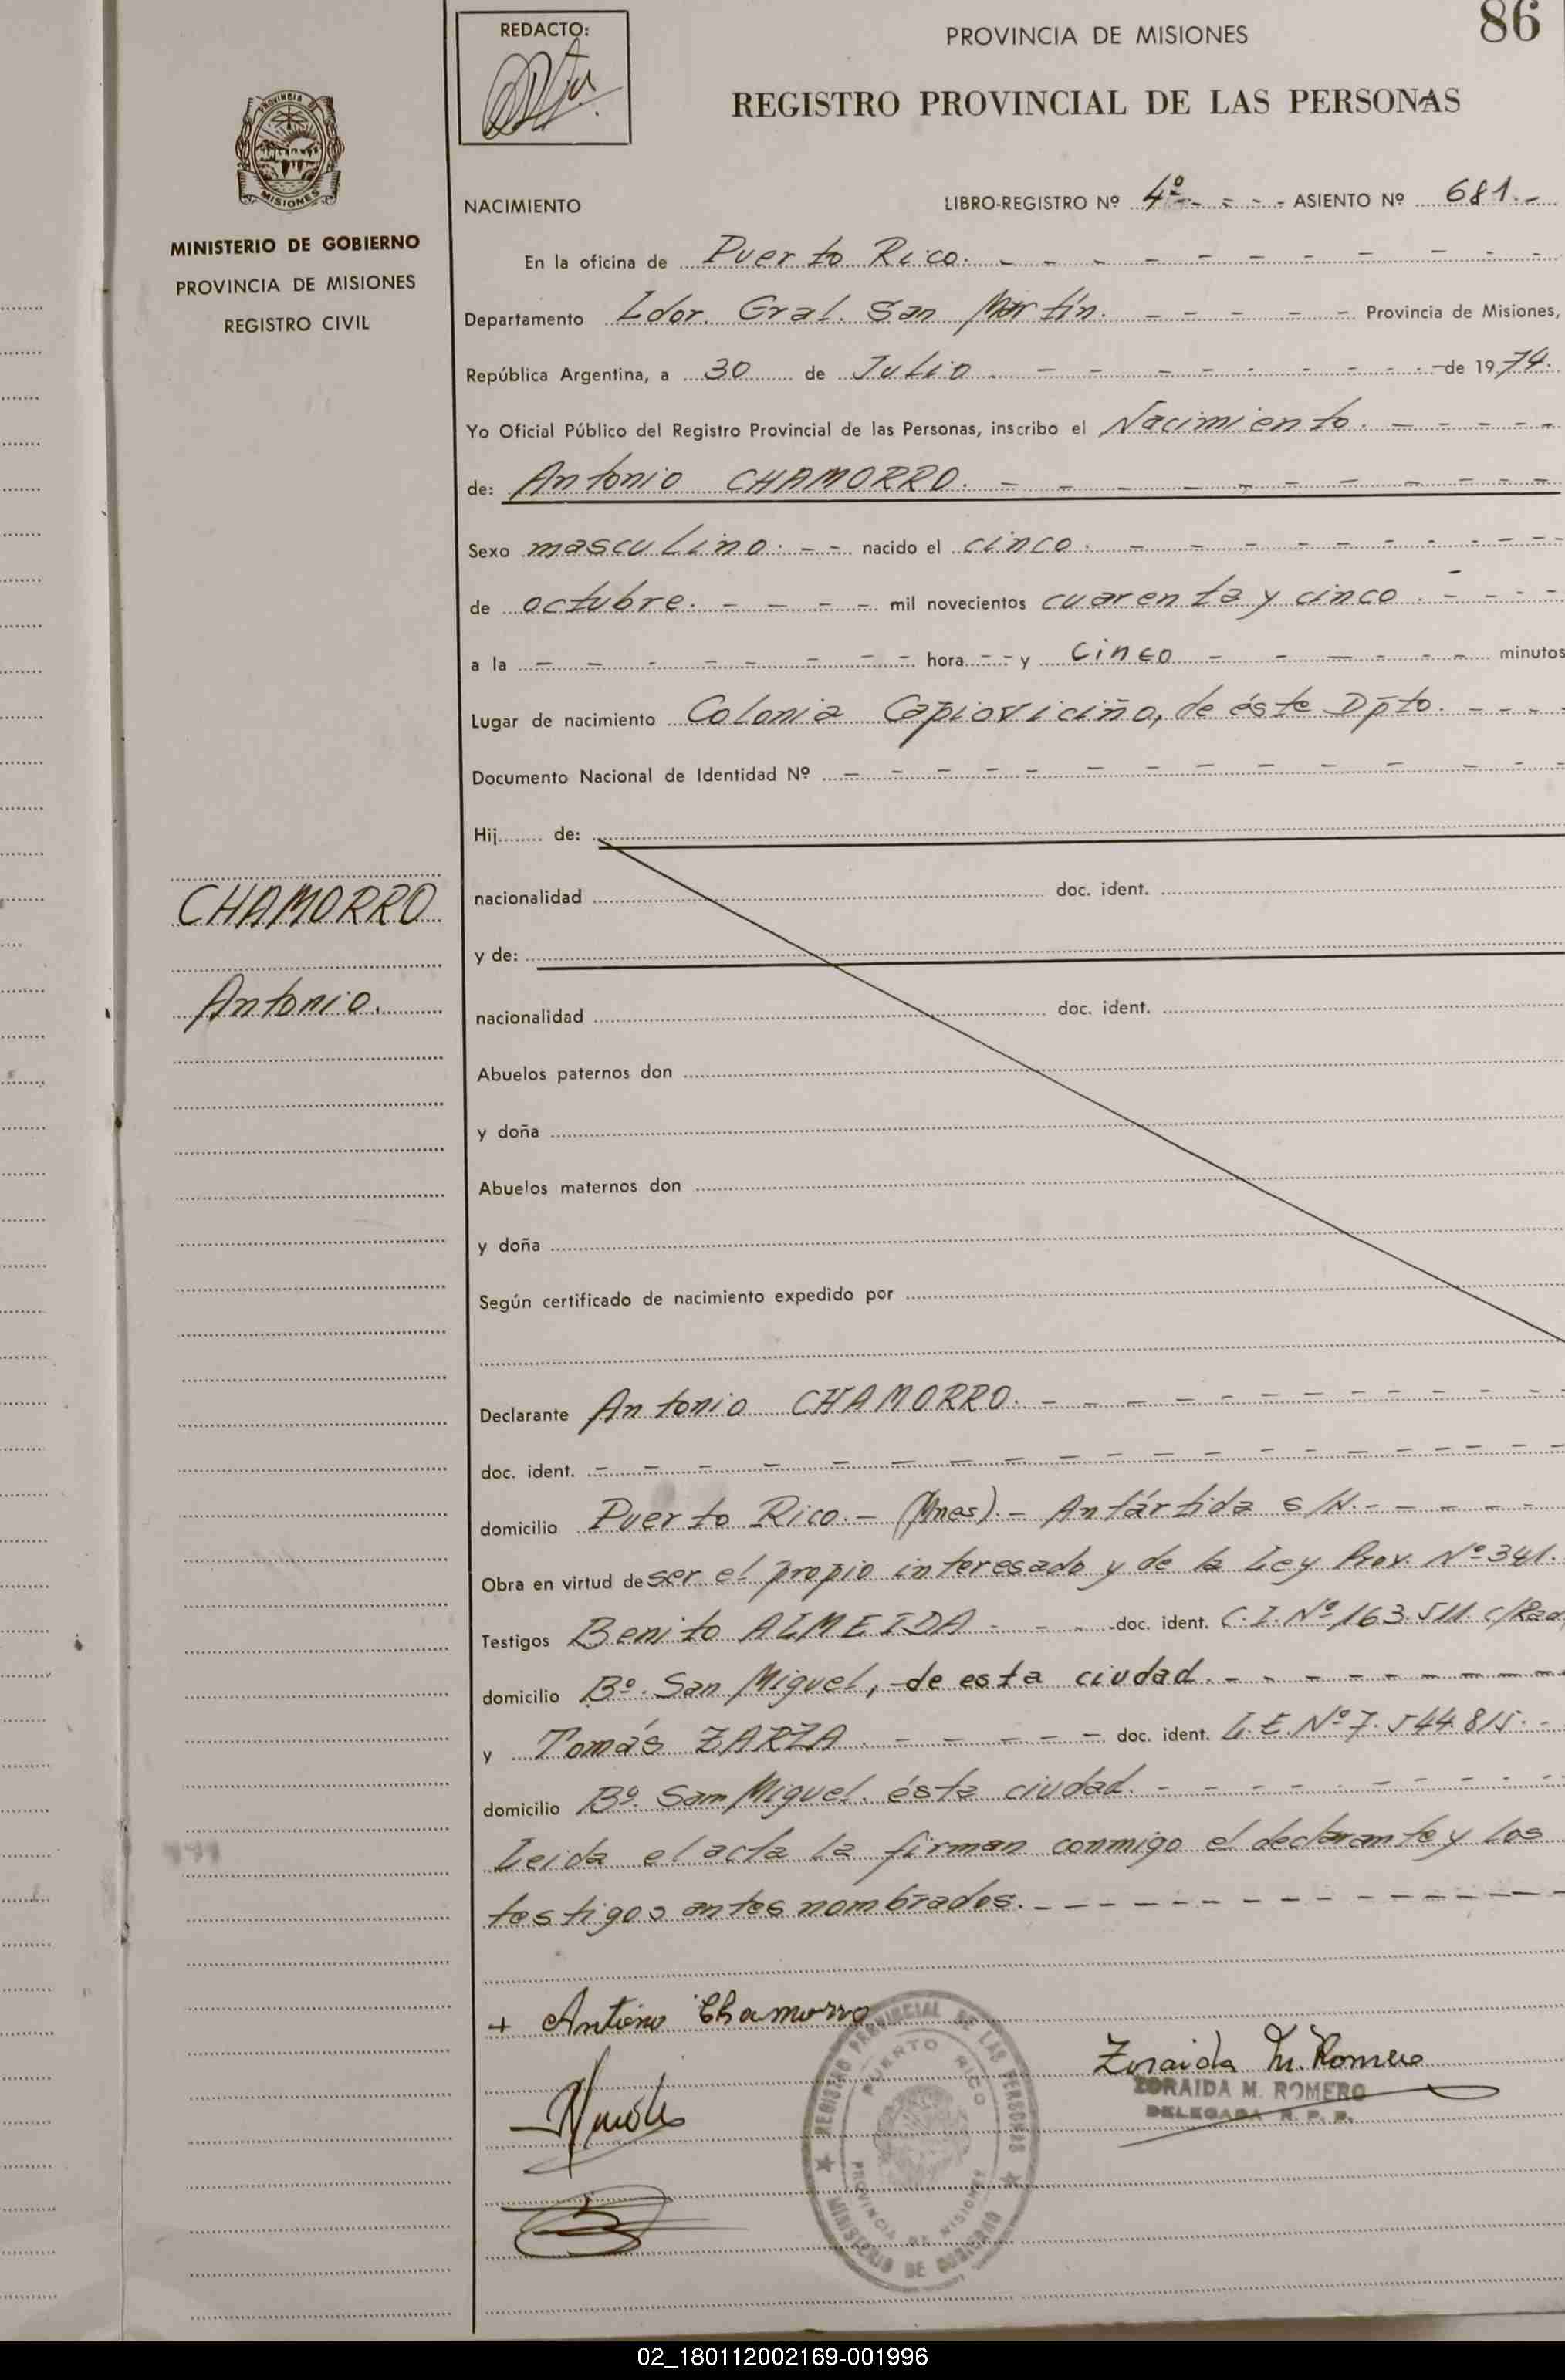 86
REDACTO:
PROVINCIA DE MISIONES
REGISTRO PROVINCIAL DE LAS PERSONAS
PROVINCIA DE
MISIONES
MINISTERIO DE GOBIERNO
PROVINCIA DE MISIONES
REGISTRO CIVIL
NACIMIENTO LIBRO-REGISTRO Nº 4º - - - - ASIENTO Nº 681.-
En la oficina de Puerto Rico. - - - - - - - - - - -
Departamento Ldor. Gral. San Martín. - - - - - Provincia de Misiones,
República Argentina, a 30 de Julio. - - - - - - - - - de 1974.
Yo Oficial Público del Registro Provincial de las Personas, inscribo el Nacimiento. - - - - -
de: Antonio CHAMORRO. - - - - - - - - - - -
Sexo masculino. - - nacido el cinco. - - - - - - - - - - -
de octubre. - - - - mil novecientos cuarenta y cinco. - - - -
a la - - - - - - - - hora - - y cinco - - - - - - minutos
Lugar de nacimiento Colonia Capioviciño, de éste Dpto. - - - -
Documento Nacional de Identidad Nº - - - - - - - - - - - - - -
Hij........ de:
nacionalidad doc. ident.
y de:
nacionalidad doc. ident.
Abuelos paternos don
y doña
Abuelos maternos don
y doña
Según certificado de nacimiento expedido por
CHAMORRO
Antonio.
Declarante Antonio CHAMORRO. - - - - - - - - - - - -
doc. ident. - - - - - - - - - - - - - - - - - -
domicilio Puerto Rico. - (Mnes). - Antártida s/N. - - - - -
Obra en virtud de ser el propio interesado y de la Ley Prov. Nº 341.
Testigos Benito ALMEIDA - - - doc. ident. C.I. Nº 163.511. c/Rad
domicilio Bº. San Miguel, de esta ciudad. - - - - - - - - -
y Tomás ZARZA. - - - - - doc. ident. L.E. Nº 7.544.815. -
domicilio Bº. San Miguel. ésta ciudad. - - - - - - - - -
Leida el acta la firman conmigo el declarante y los
testigos antes nombrados. - - - - - - - - - - - - -
+ Antonio Chamorro
Zoraida M. Romero
ZORAIDA M. ROMERO
DELEGADA R. P. P.
REGISTRO PROVINCIAL DE LAS PERSONAS
PUERTO RICO
PROVINCIA DE MISIONES
MINISTERIO DE GOBIERNO
02_180112002169-001996